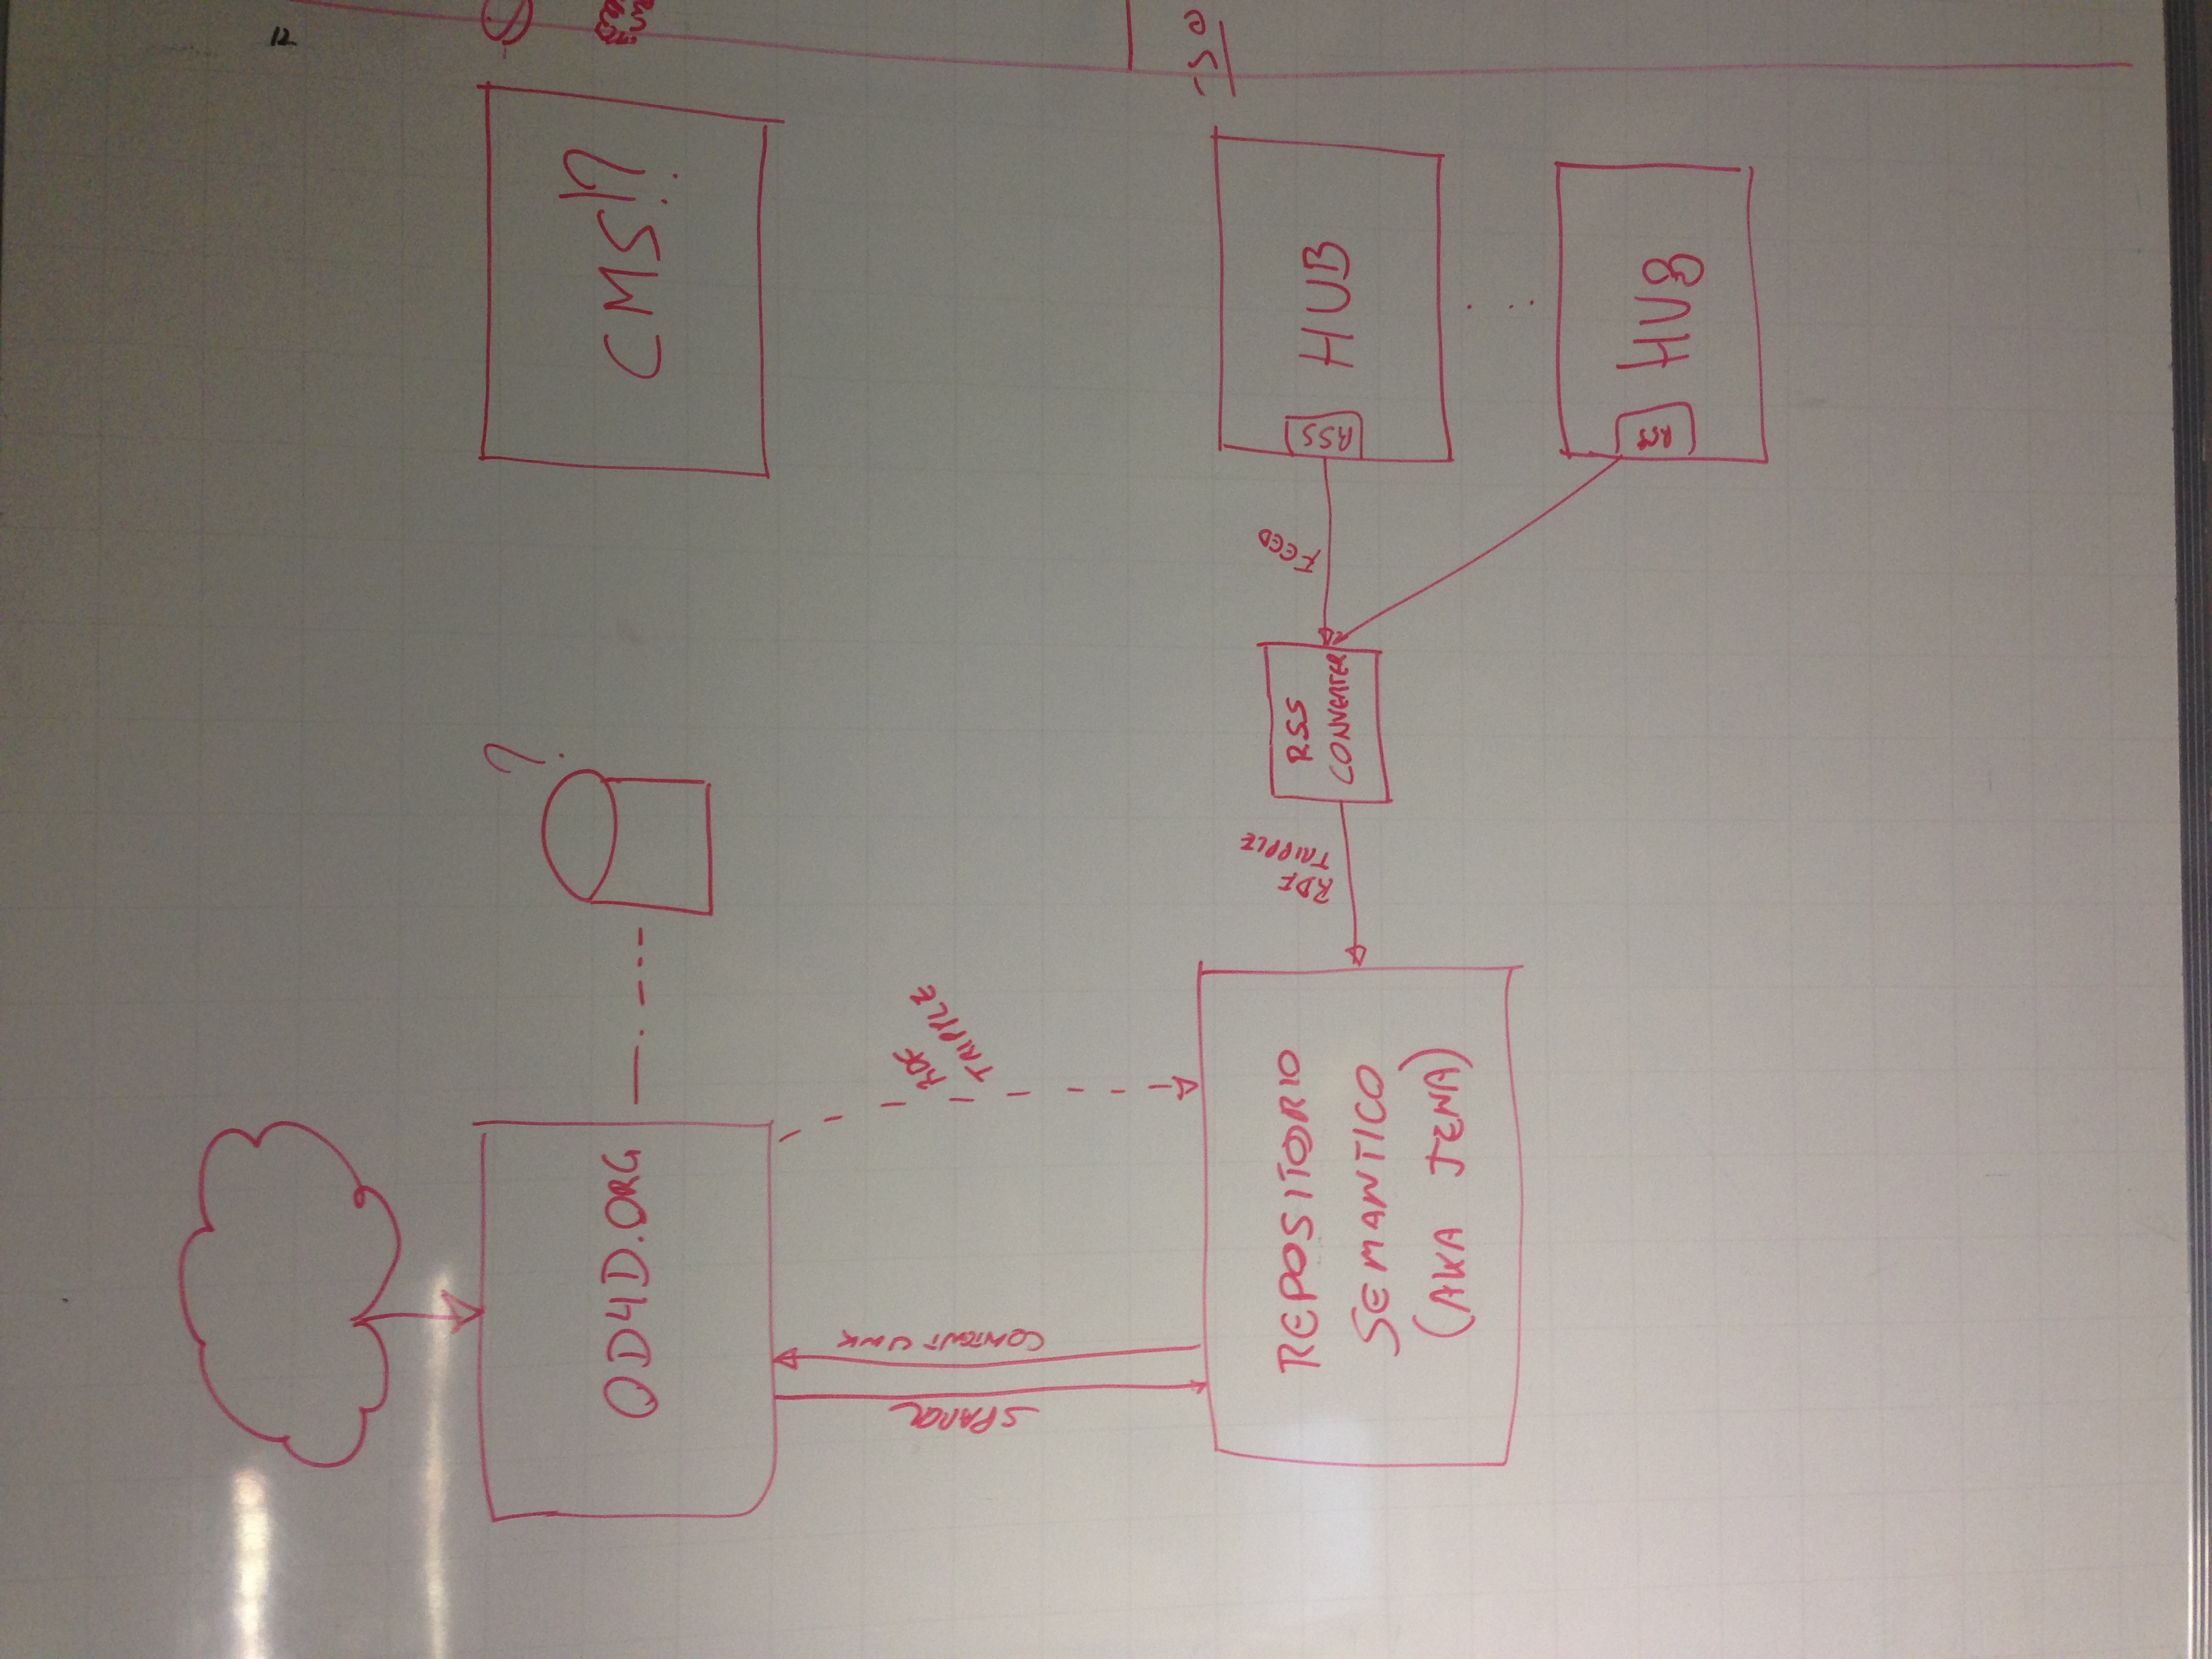 ?
OD4D.ORG
CMS!?
SPARQL
CONTENT LINK
RDF
TRIPPLE
REPOSITORIO
SEMANTICO
(AKA JENA)
RDF
TRIPPLE
RSS
CONVERTER
FEED
RSS
HUB
RSS
HUB